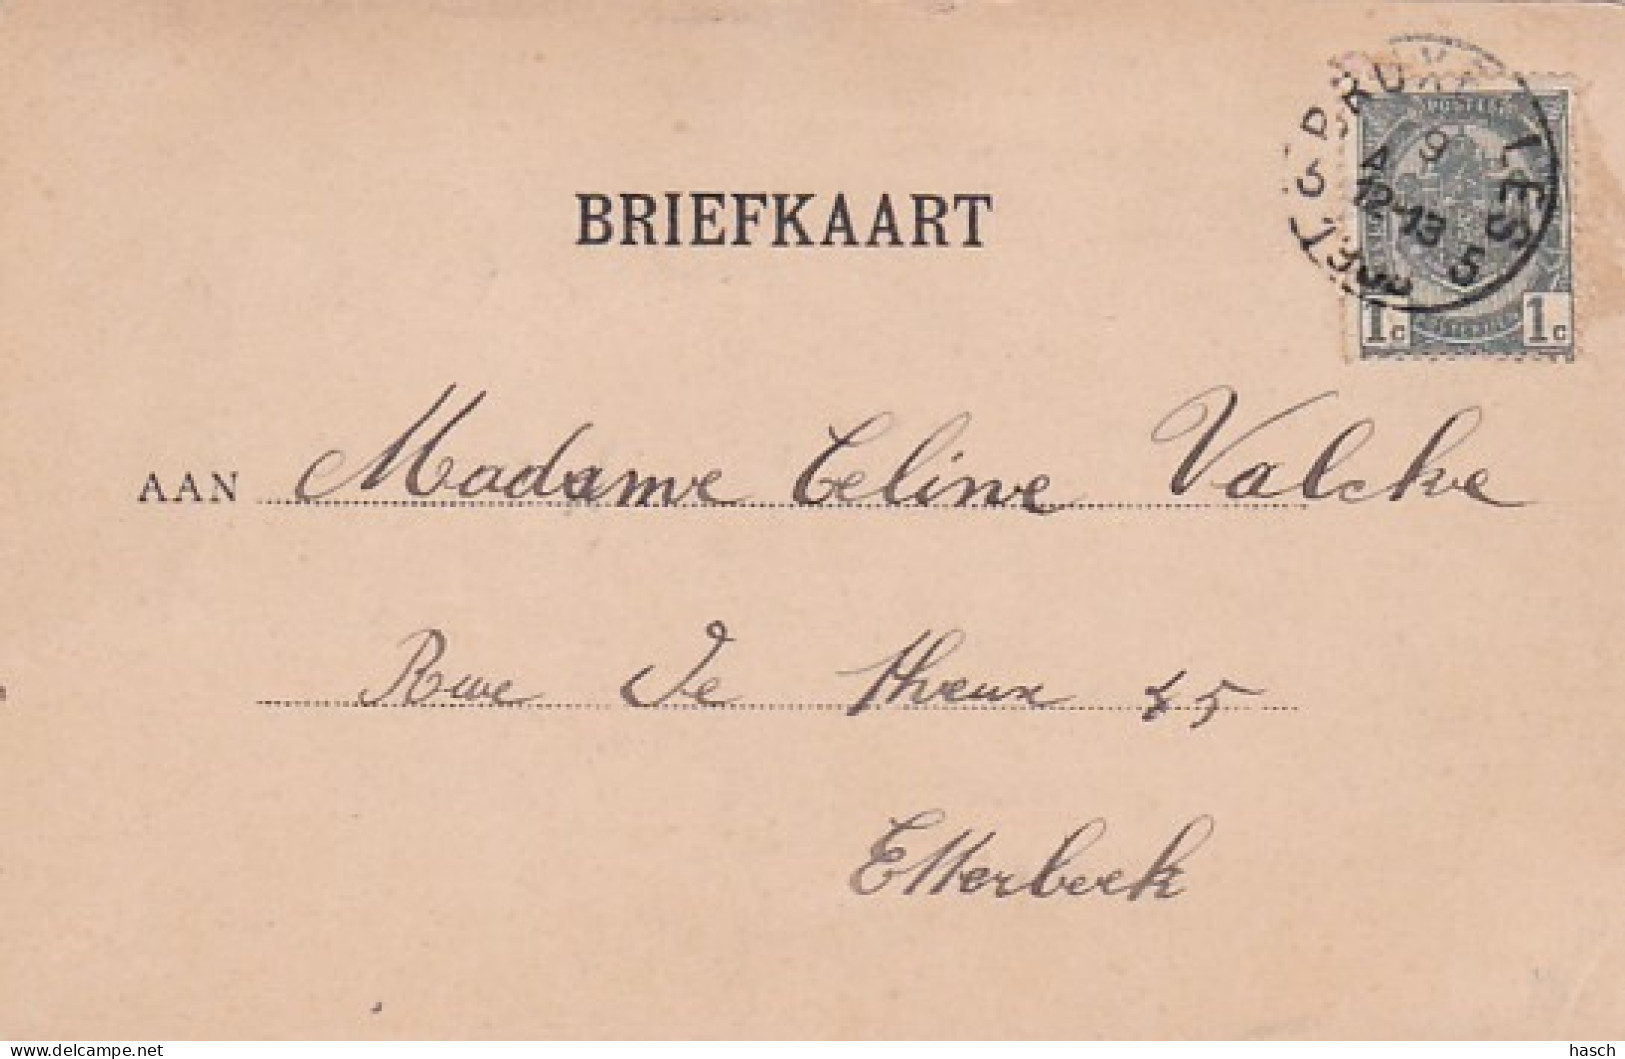 BRIEFKAART
BRUXELLES
9
12-13
5
POSTES
1c 1c
AAN Madame Celine Valcke
Rue De Theux 45
Etterbeek
delcampe.net
hasch